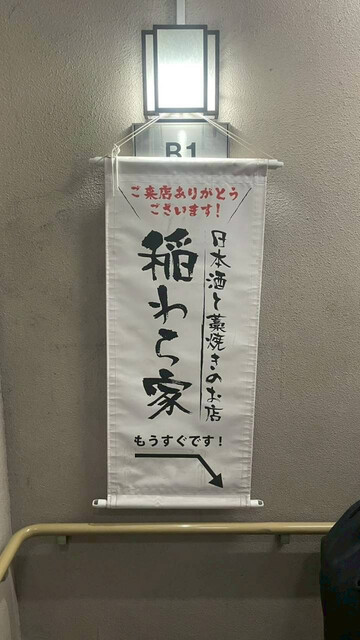 B1
ご来店ありがとう
ございます！
日本酒と藁焼きのお店
稲わら家
もうすぐです！